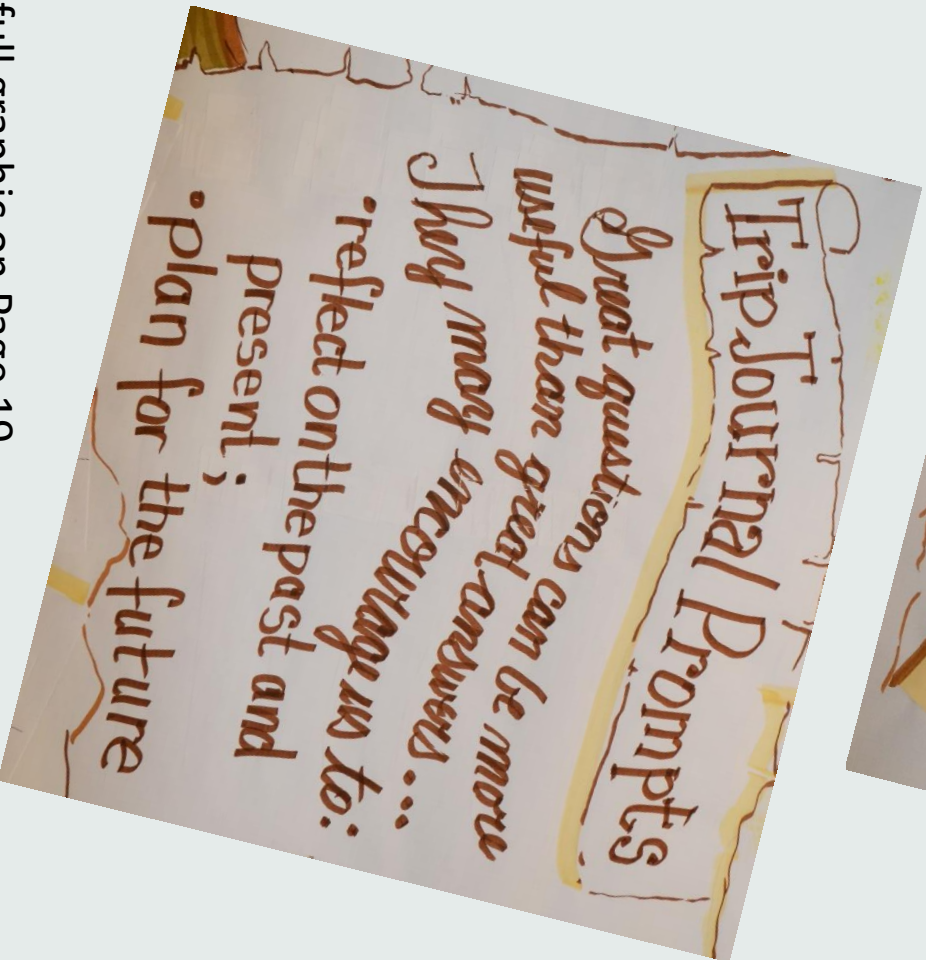 Trip Journal Prompts
Great questions can be more
useful than great answers...
They may encourage us to:
•reflect on the past and
present;
•plan for the future
full graphic on Page 10